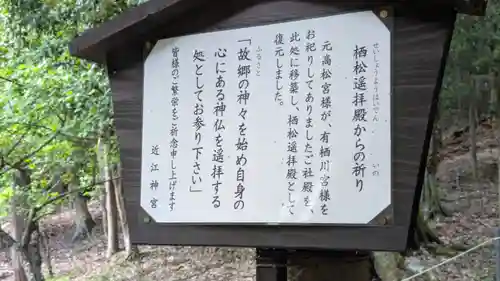 栖松遥拝殿からの祈り
せいしょうようはいでん
いの
元高松宮様が、有栖川宮様を
お祀りしてありましたご社殿を、
此処に移築し、栖松遥拝殿として
復元しました。
「故郷の神々を始め自身の
ふるさと
心にある神仏を遥拝する
処としてお参り下さい」
皆様のご繁栄をご祈念申し上げます
近江神宮